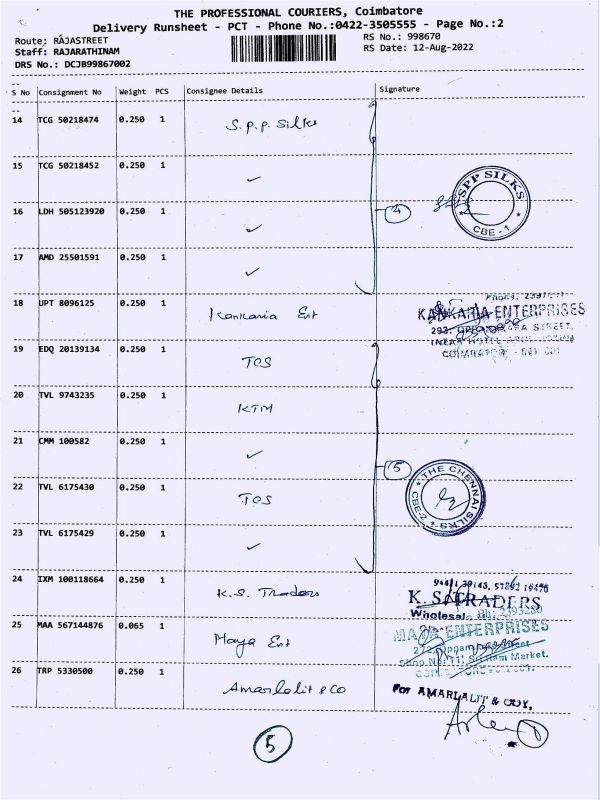 THE PROFESSIONAL COURIERS, Coimbatore
Delivery Runsheet - PCT - Phone No.:0422-3505555 - Page No.:2
Route: RAJASTREET
RS No.: 998670
Staff: RAJARATHINAM
RS Date: 12-Aug-2022
DRS No.: DCJB99867002
S No Consignment No Weight PCS Consignee Details Signature
14 TCG 50218474 0.250 1 S.P.P. Silks
15 TCG 50218452 0.250 1 ✓
16 LDH 505123920 0.250 1 ✓
4
SPP SILKS
CBE - 1
17 AMD 25501591 0.250 1 ✓
18 UPT 8096125 0.250 1 Kankaria Ent
KANKARIA ENTERPRISES
19 EDQ 20139134 0.250 1 TCS
20 TVL 9743235 0.250 1 KTM
21 CMM 100582 0.250 1 ✓
5
THE CHENNAI SILKS
CBE-2
22 TVL 6175430 0.250 1 TCS
23 TVL 6175429 0.250 1 ✓
24 IXM 100118664 0.250 1 K.S. Traders
K. S. TRADERS
Wholesale
25 MAA 567144876 0.065 1 Maya Ent
MAYA ENTERPRISES
Market.
26 TRP 5330500 0.250 1 Amarlalit & Co
For AMARLALIT & COY,
5